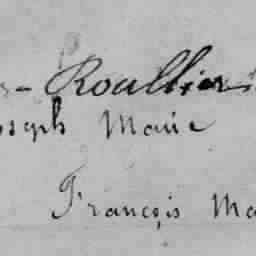 Roullier
oseph Marie
François Ma